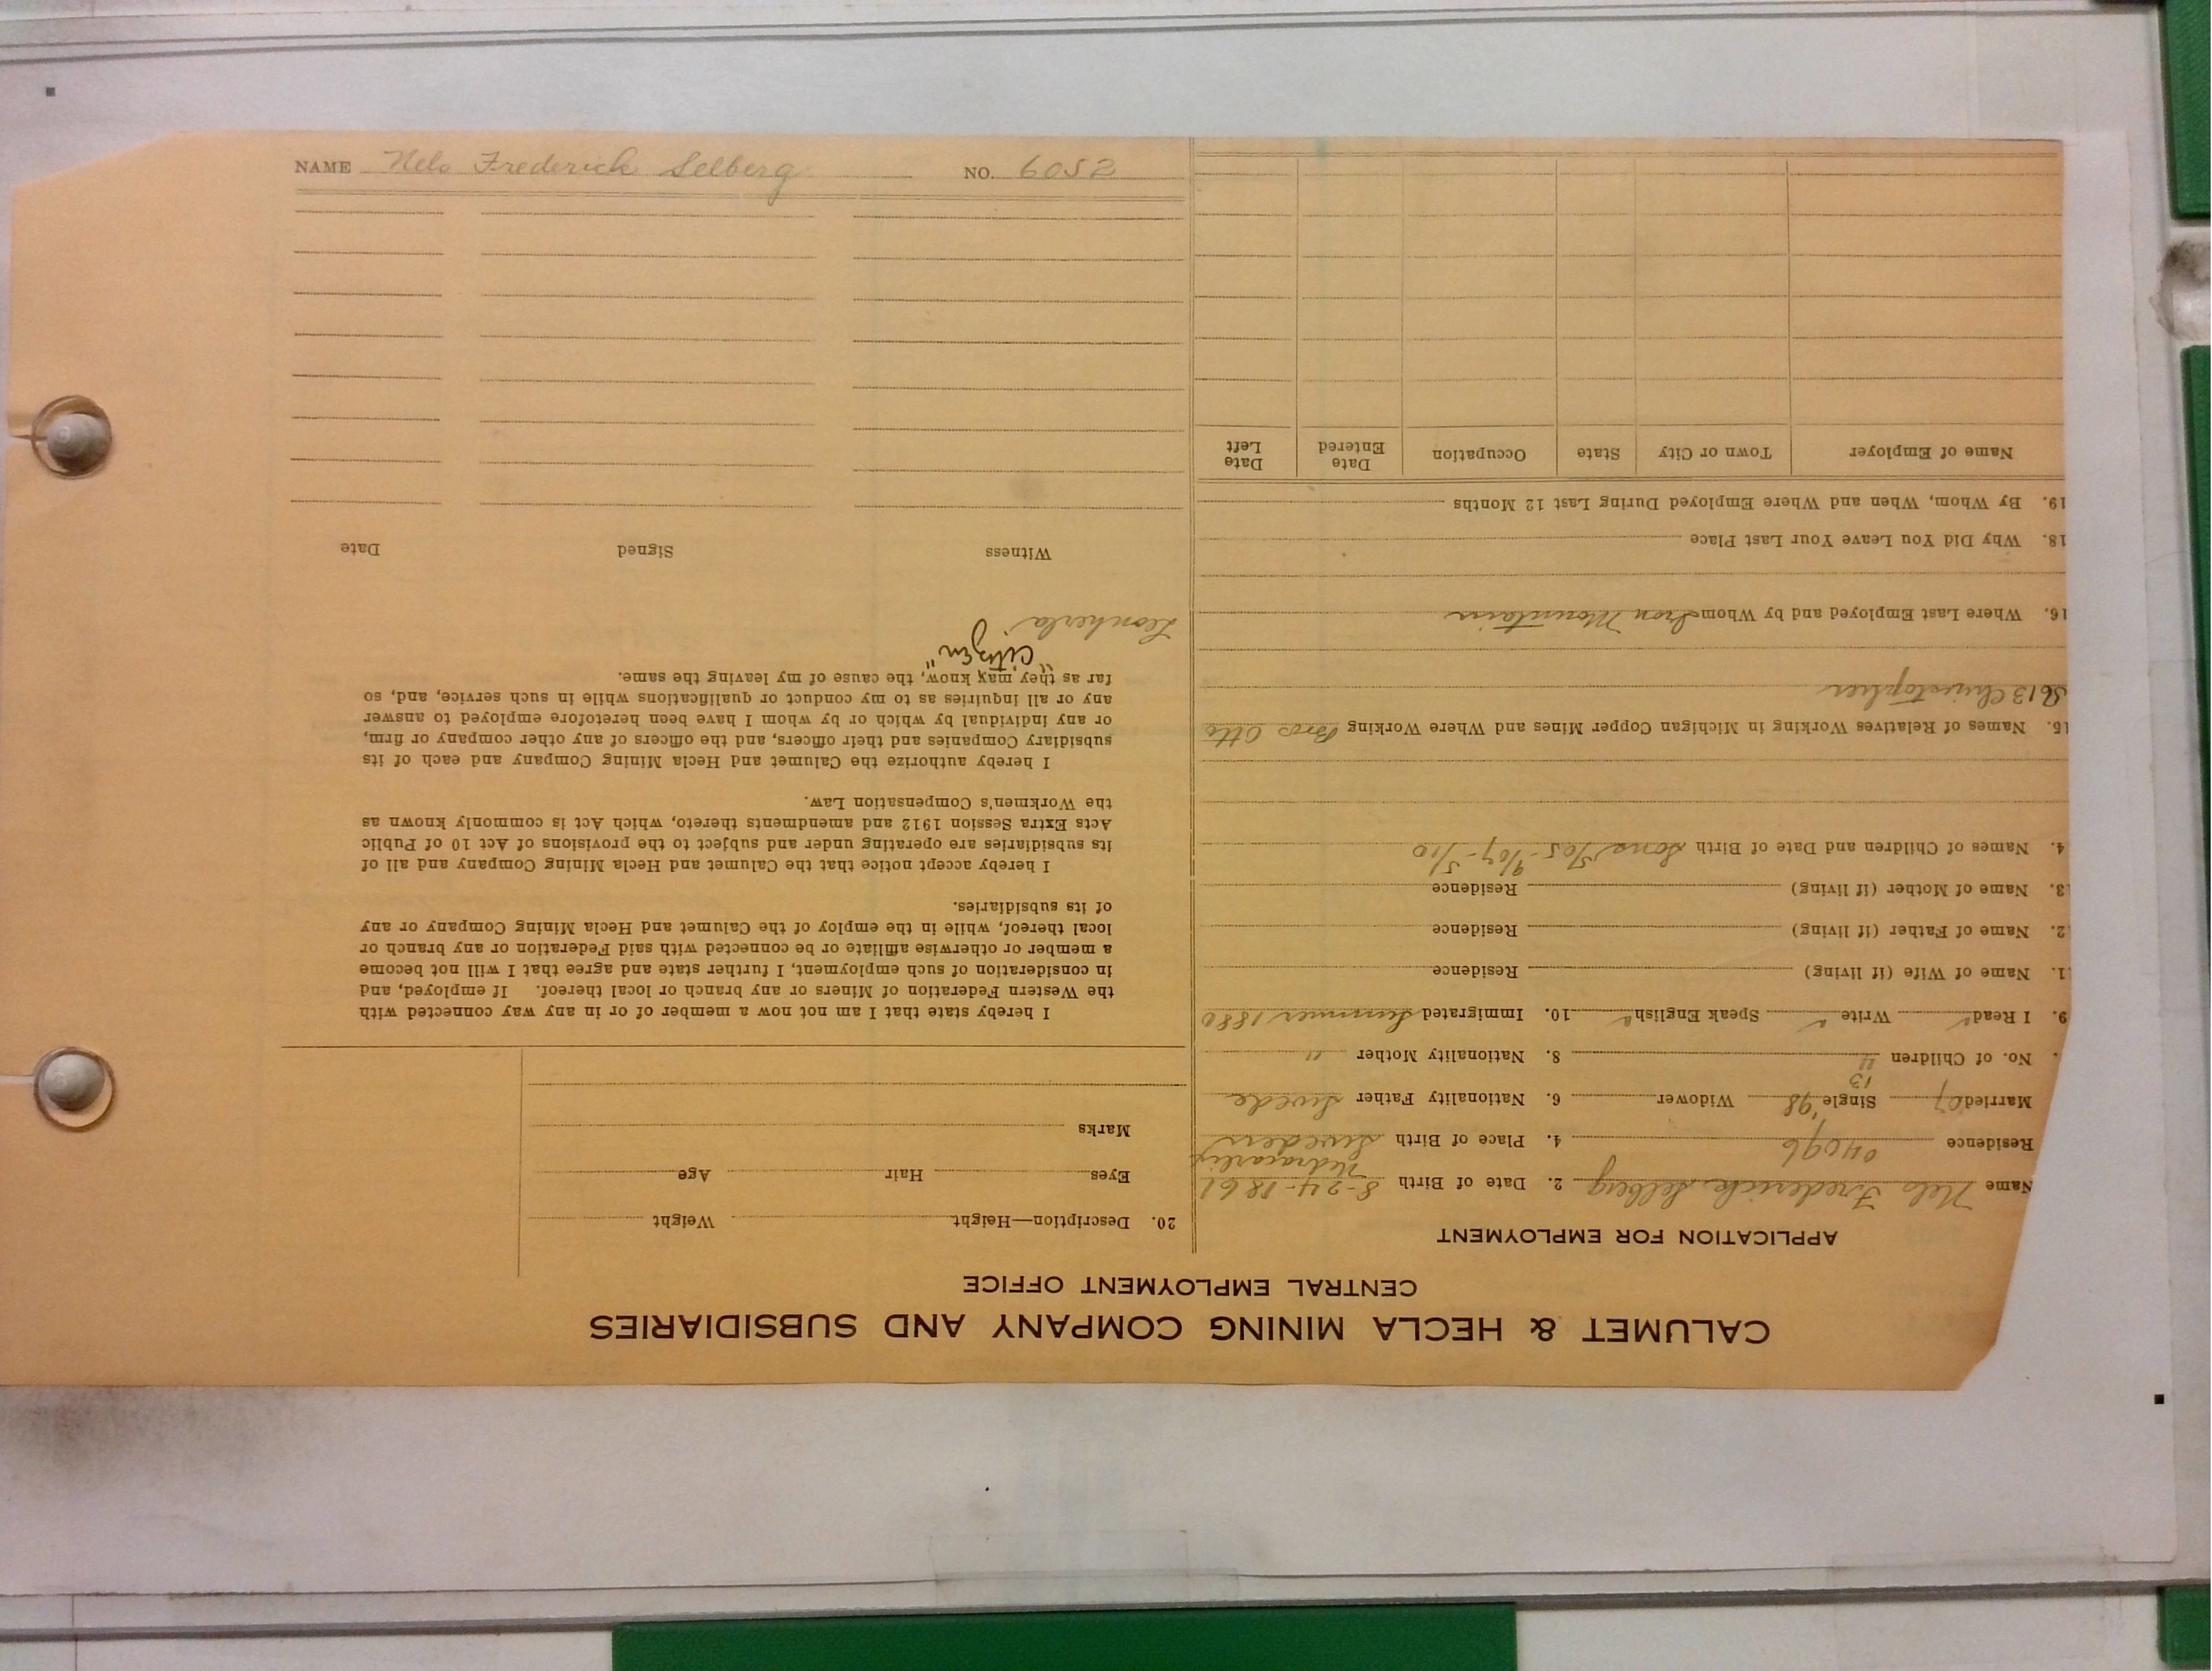 NAME Nels Frederick Selberg NO. 6052
CALUMET & HECLA MINING COMPANY AND SUBSIDIARIES
CENTRAL EMPLOYMENT OFFICE
APPLICATION FOR EMPLOYMENT
Name Nels Frederick Selberg 2. Date of Birth 8-24-1861
Residence 04096 4. Place of Birth Sweden
Married 07 Single '98 Widower 6. Nationality Father Swede
13
No. of Children 8. Nationality Mother "
9. I Read Write Speak English 10. Immigrated Summer 1880
1. Name of Wife (if living) Residence
2. Name of Father (if living) Residence
3. Name of Mother (if living) Residence
4. Names of Children and Date of Birth Sons 5/05-9/07-5/10
15. Names of Relatives Working in Michigan Copper Mines and Where Working Bros Otto
S613 Christopher
16. Where Last Employed and by Whom Iron Mountain
18. Why Did You Leave Your Last Place
19. By Whom, When and Where Employed During Last 12 Months
Name of Employer Town or City State Occupation Date Entered Date Left
20. Description—Height Weight
Eyes Hair Age
Marks
I hereby state that I am not now a member of or in any way connected with
the Western Federation of Miners or any branch or local thereof. If employed, and
in consideration of such employment, I further state and agree that I will not become
a member or otherwise affiliate or be connected with said Federation or any branch or
local thereof, while in the employ of the Calumet and Hecla Mining Company or any
of its subsidiaries.
I hereby accept notice that the Calumet and Hecla Mining Company and all of
its subsidiaries are operating under and subject to the provisions of Act 10 of Public
Acts Extra Session 1912 and amendments thereto, which Act is commonly known as
the Workmen's Compensation Law.
I hereby authorize the Calumet and Hecla Mining Company and each of its
subsidiary Companies and their officers, and the officers of any other company or firm,
or any individual by which or by whom I have been heretofore employed to answer
any or all inquiries as to my conduct or qualifications while in such service, and, so
far as they may know, the cause of my leaving the same.
"Citizen"
Witness Signed Date